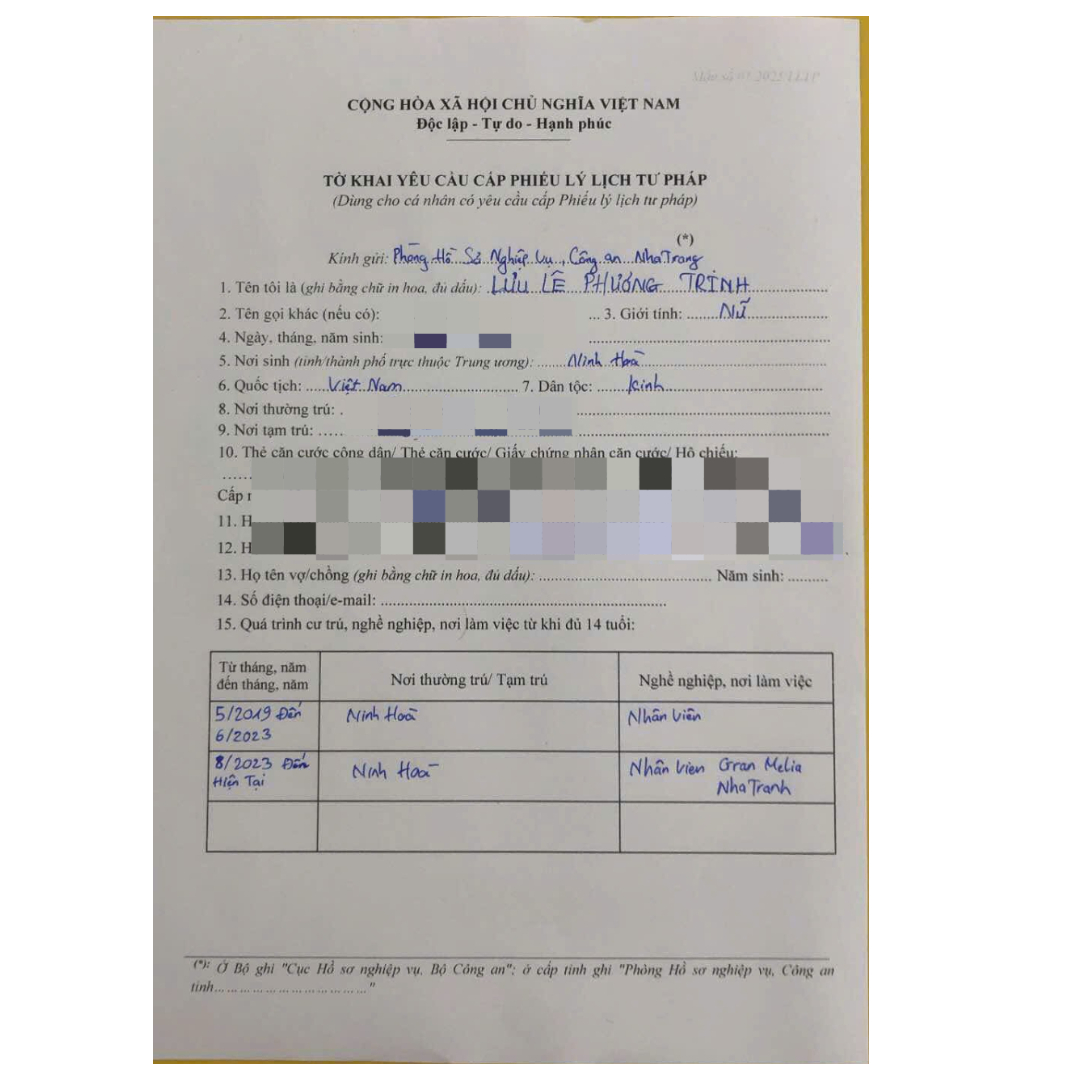 Mẫu số 03/2025/LLTP
CỘNG HÒA XÃ HỘI CHỦ NGHĨA VIỆT NAM
Độc lập - Tự do - Hạnh phúc
TỜ KHAI YÊU CẦU CẤP PHIẾU LÝ LỊCH TƯ PHÁP
(Dùng cho cá nhân có yêu cầu cấp Phiếu lý lịch tư pháp)
(*)
Kính gửi: Phòng Hồ Sơ Nghiệp Vụ, Công an Nha Trang
1. Tên tôi là (ghi bằng chữ in hoa, đủ dấu): LƯU LÊ PHƯƠNG TRINH
2. Tên gọi khác (nếu có): ... 3. Giới tính: ....... Nữ
4. Ngày, tháng, năm sinh:
5. Nơi sinh (tỉnh/thành phố trực thuộc Trung ương): Ninh Hoà
6. Quốc tịch: Việt Nam 7. Dân tộc: Kinh
8. Nơi thường trú: .
9. Nơi tạm trú: .....
10. Thẻ căn cước công dân/ Thẻ căn cước/ Giấy chứng nhận căn cước/ Hộ chiếu:
......
Cấp
11. H
12. H
13. Họ tên vợ/chồng (ghi bằng chữ in hoa, đủ dấu): .......... Năm sinh: ..........
14. Số điện thoại/e-mail: ..........
15. Quá trình cư trú, nghề nghiệp, nơi làm việc từ khi đủ 14 tuổi:
Từ tháng, năm
đến tháng, năm
Nơi thường trú/ Tạm trú
Nghề nghiệp, nơi làm việc
5/2019 Đến
6/2023
Ninh Hoà
Nhân Viên
8/2023 Đến
Hiện Tại
Ninh Hoà
Nhân Viên Gran Melia
Nha Tranh
(*): Ở Bộ ghi "Cục Hồ sơ nghiệp vụ, Bộ Công an"; ở cấp tỉnh ghi "Phòng Hồ sơ nghiệp vụ, Công an
tỉnh.............................."